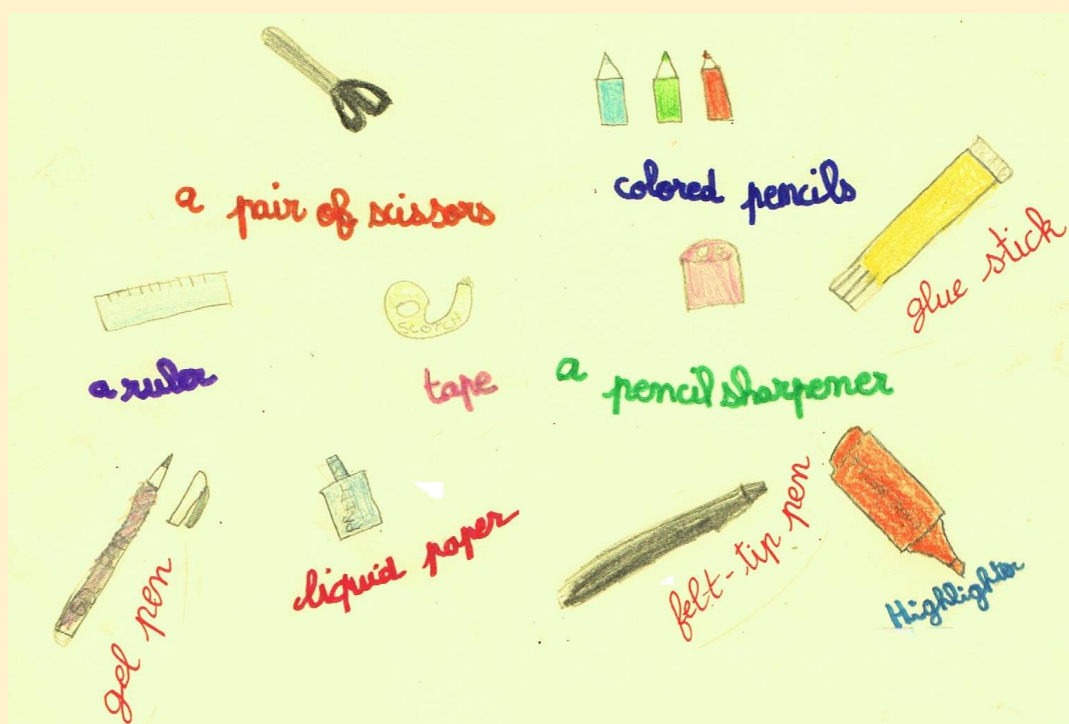 a pair of scissors
colored pencils
glue stick
SCOTCH
a ruler
tape
a pencil sharpener
gel pen
liquid paper
felt-tip pen
Highlighter